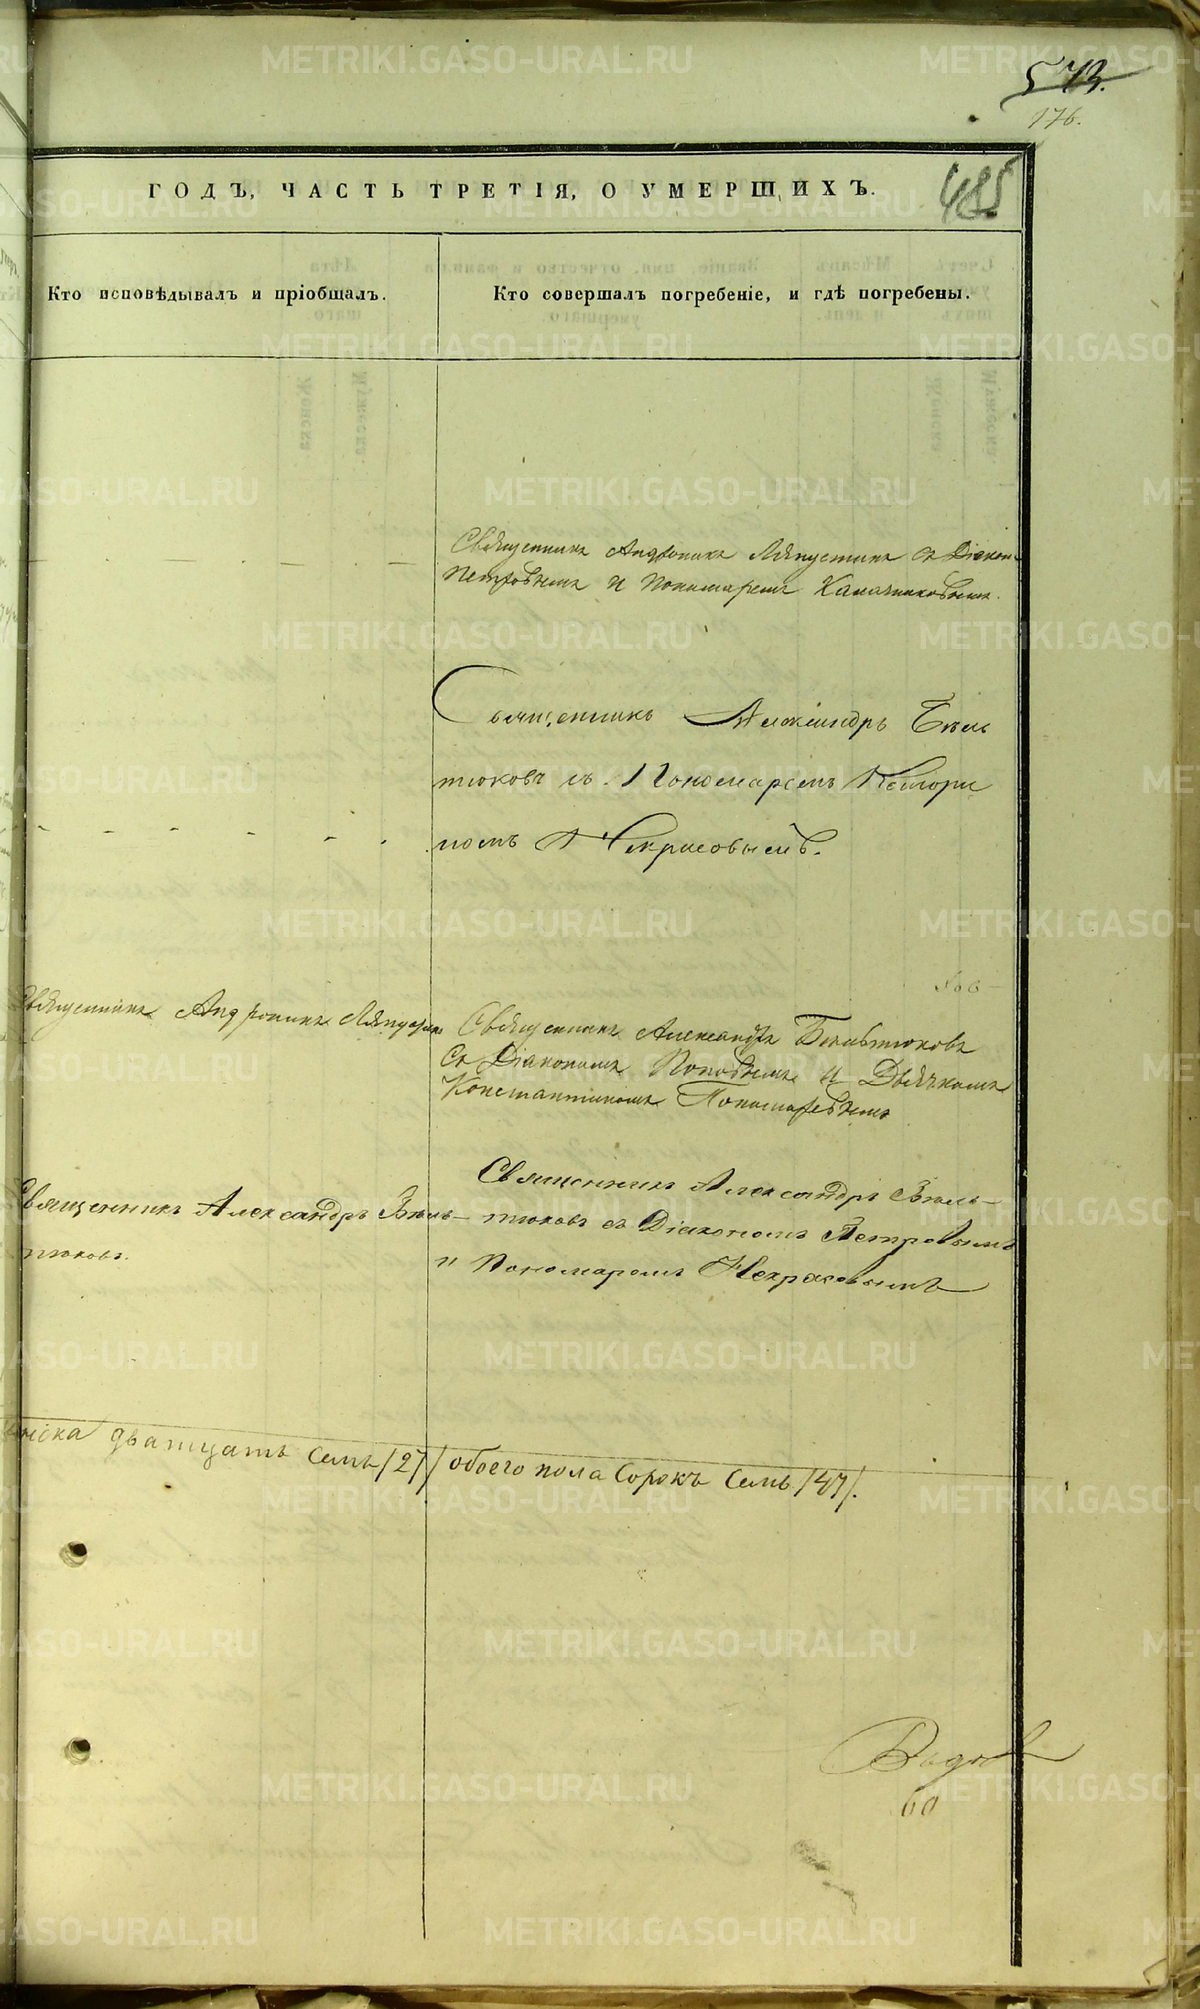 573.
176.
485
ГОДЪ, ЧАСТЬ ТРЕТІЯ, О УМЕРШИХЪ.
Кто исповѣдывалъ и пріобщалъ.
Кто совершалъ погребеніе, и гдѣ погребены.
Священникъ Андроникъ Ляпустинъ съ Діакон.
Петровымъ и Пономаремъ Калачниковымъ.
Священникъ Александръ Бѣль
тюковъ съ Пономаремъ
номъ Некрасовымъ.
Священникъ Андроникъ Ляпустин
Священникъ Александръ Бѣльтюковъ
Съ Діакономъ Поповымъ и Дьячкомъ
Константиномъ Пономаревымъ
Священникъ Александръ Бѣль-
тюковъ.
Священникъ Александръ Бѣль-
тюковъ съ Діакономъ Петровымъ
и Пономаремъ Некрасовымъ
женска дватцать семь /27/ обоего пола Сорокъ Семь /47/.
60
METRIKI.GASO-URAL.RU